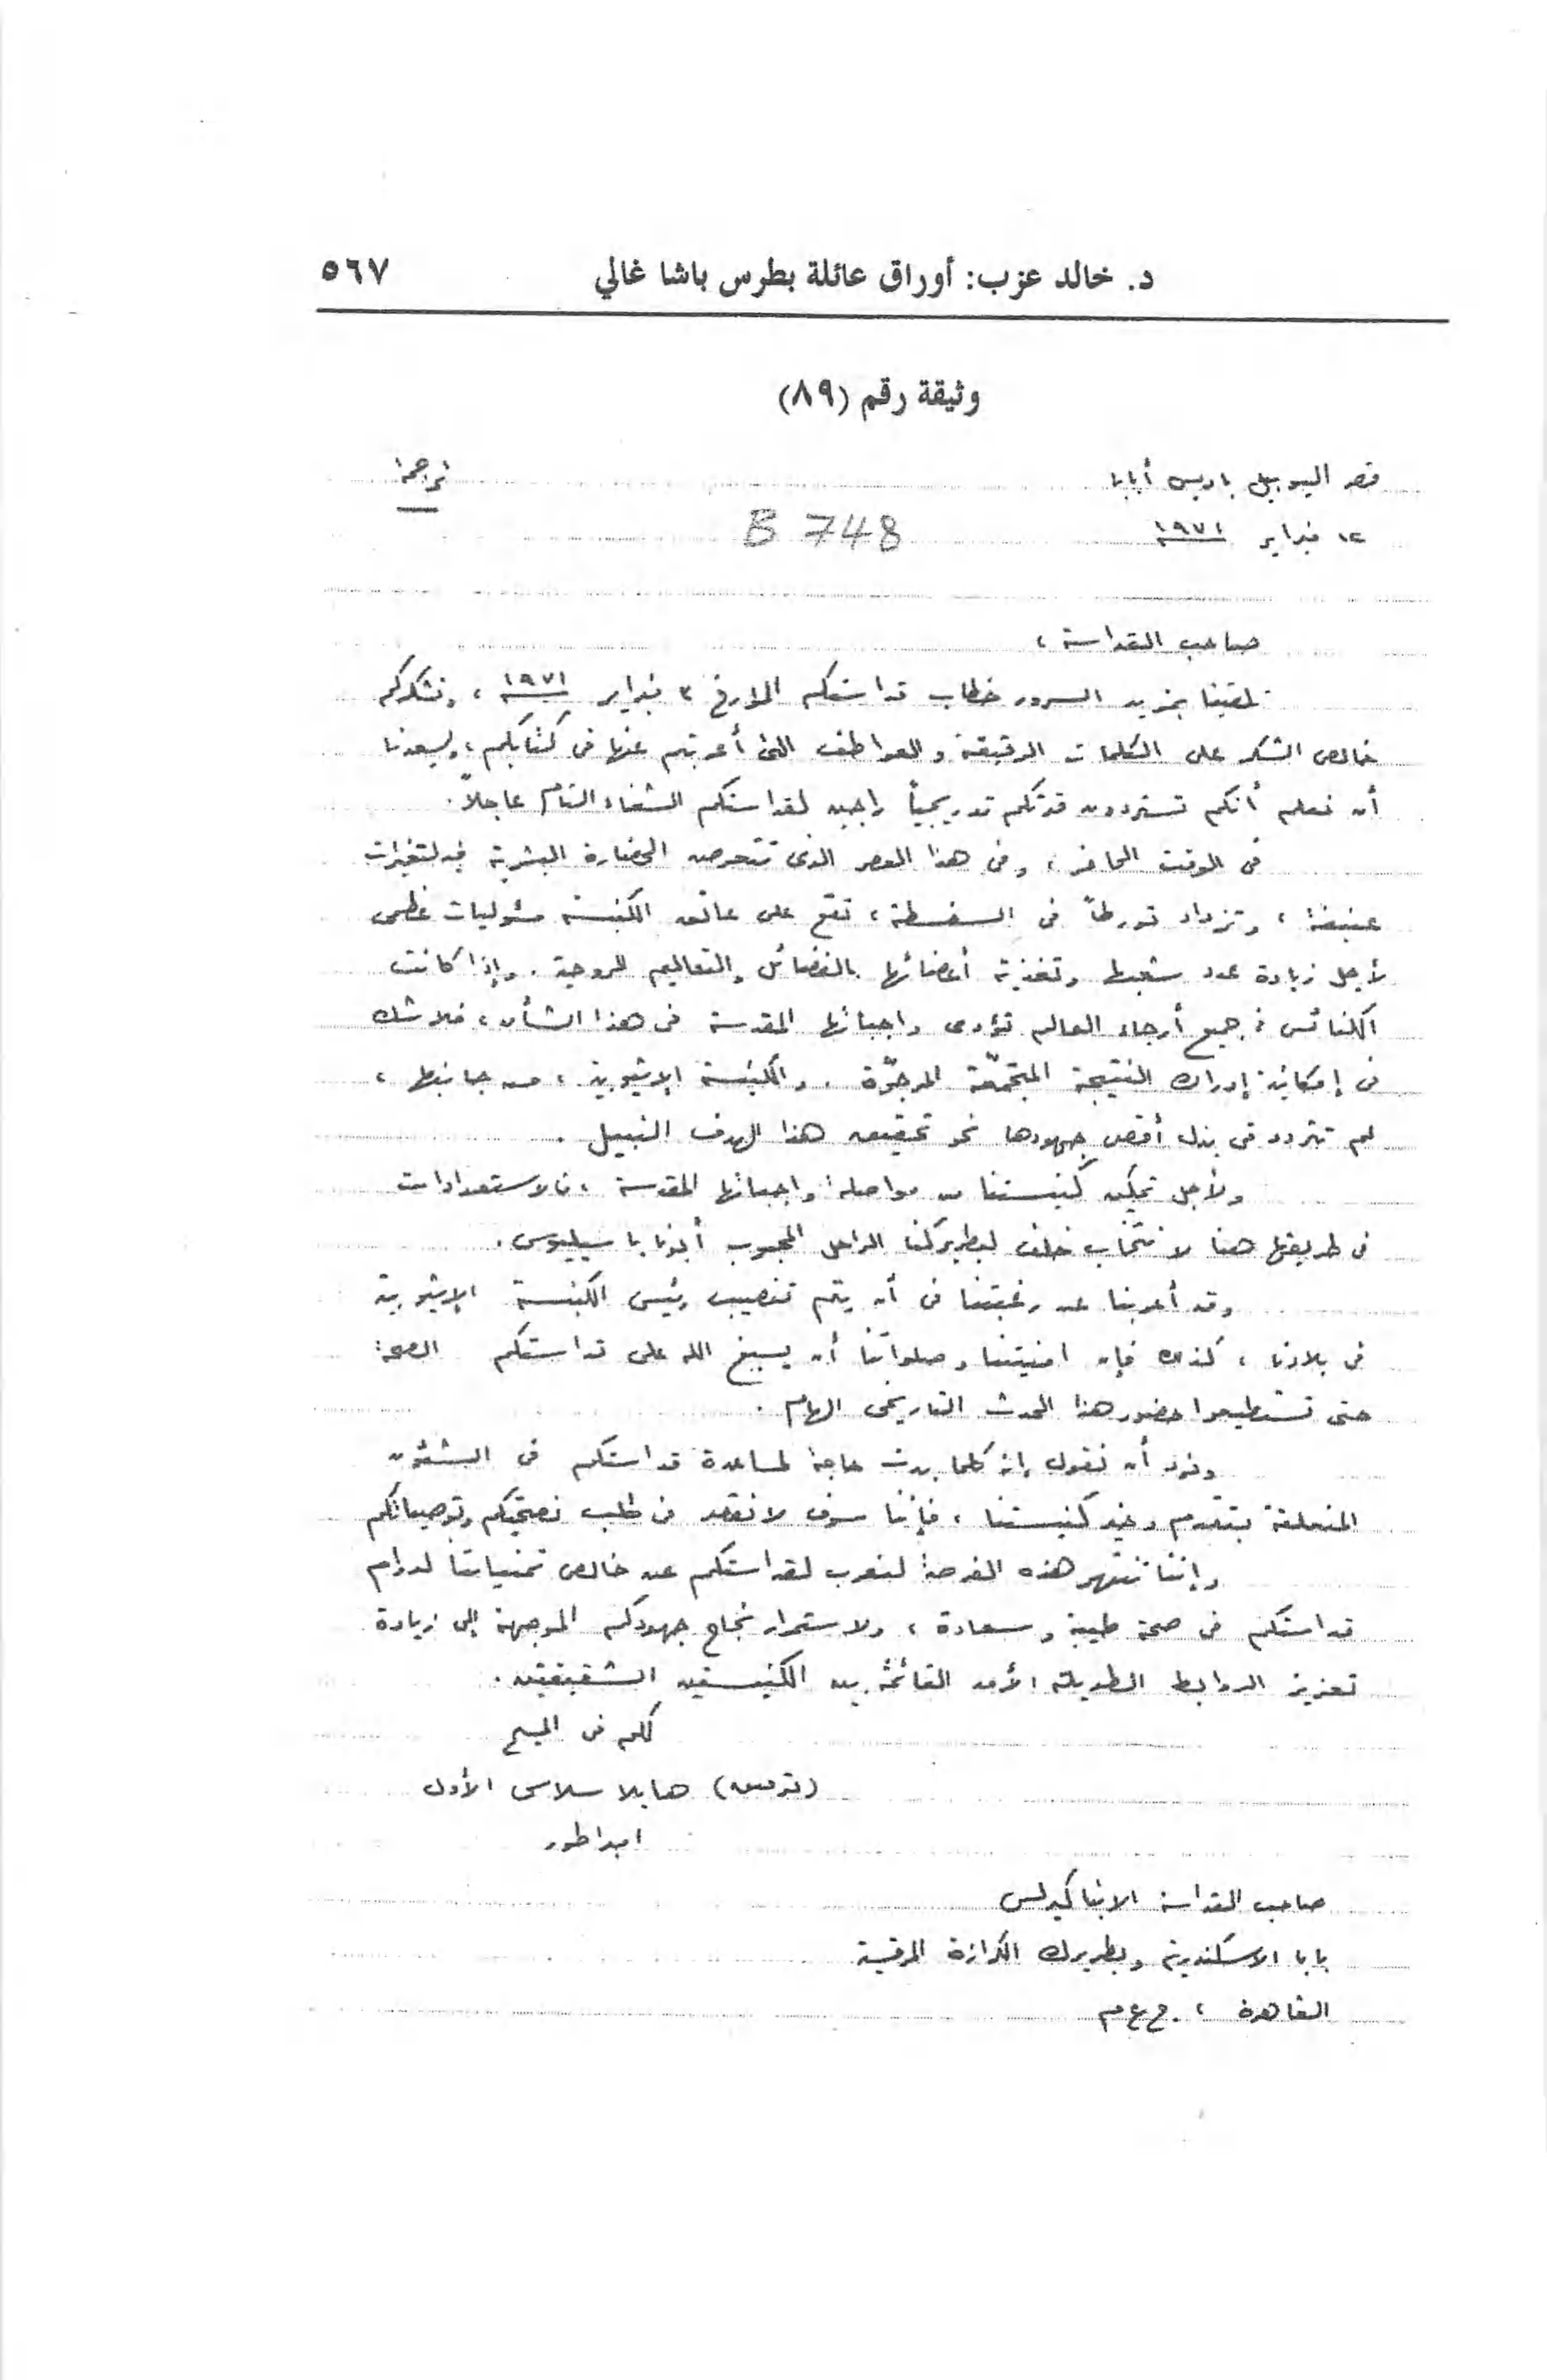 د. خالد عزب: أوراق عائلة بطرس باشا غالي ٥٦٧
وثيقة رقم (٨٩)
قصر اليوبيل باديس أبابا ترجمة
١٢ فبراير ١٩٧١ B 748
صاحب القداسة ،
تلقينا بمزيد السرور خطاب قداستكم المؤرخ ٢ فبراير ١٩٧١ ، ونشكركم
خالص الشكر على الكلمات الرقيقة والعواطف التى أعربتم عنها فى كتابكم ، ويسعدنا
أن نعلم أنكم تستردون قوتكم تدريجياً راجين لقداستكم الشفاء التام عاجلاً .
فى الوقت الحاضر ، وفى هذا العصر الذى تتعرض الحضارة البشرية فيه لتغيرات
عنيفة ، وتزداد تورطاً فى السفسطة ، تقع على عاتق الكنيسة مسئوليات عظمى
لأجل زيادة عدد شعبها وتغذية أعضائها بالفضائل والتعاليم الروحية . وإذا كانت
الكنائس فى جميع أرجاء العالم تؤدى واجباتها المقدسة فى هذا الشأن ، فلا شك
فى إمكانية إدراك النتيجة المرجوّة . والكنيسة الإثيوبية ، من جانبها ،
لم تتردد فى بذل أقصى جهودها نحو تحقيق هذا الهدف النبيل .
ولأجل تمكين كنيستنا من مواصلة واجباتها المقدسة ، فالاستعدادات
فى طريقها هنا لانتخاب خلف لبطريركنا الراحل المحبوب أبونا باسيليوس .
وقد أعربنا عن رغبتنا فى أن يتم تنصيب رئيس الكنيسة الإثيوبية
فى بلادنا ، كذلك فإن امنيتنا وصلواتنا أن يسبغ الله على قداستكم الصحة
حتى تستطيعوا حضور هذا الحدث التاريخى الهام .
ونود أن نقول إنه كلما بدت حاجة لمساعدة قداستكم فى الشئون
المتعلقة بتقدم وخير كنيستنا ، فإننا سوف لا نقصر فى طلب نصيحتكم وتوصياتكم
وإننا ننتهز هذه الفرصة لنعرب لقداستكم عن خالص تمنياتنا لدوام
قداستكم فى صحة طيبة وسعادة ، ولاستمرار نجاح جهودكم الموجهة إلى زيادة
تعزيز الروابط الطويلة الأمد القائمة بين الكنيستين الشقيقتين .
لكم فى المسيح
(توقيع) هايلا سلاسى الأول
امبراطور
صاحب القداسة الانبا كيرلس
بابا الاسكندرية وبطريرك الكرازة المرقسية
القاهرة ، ج ع م